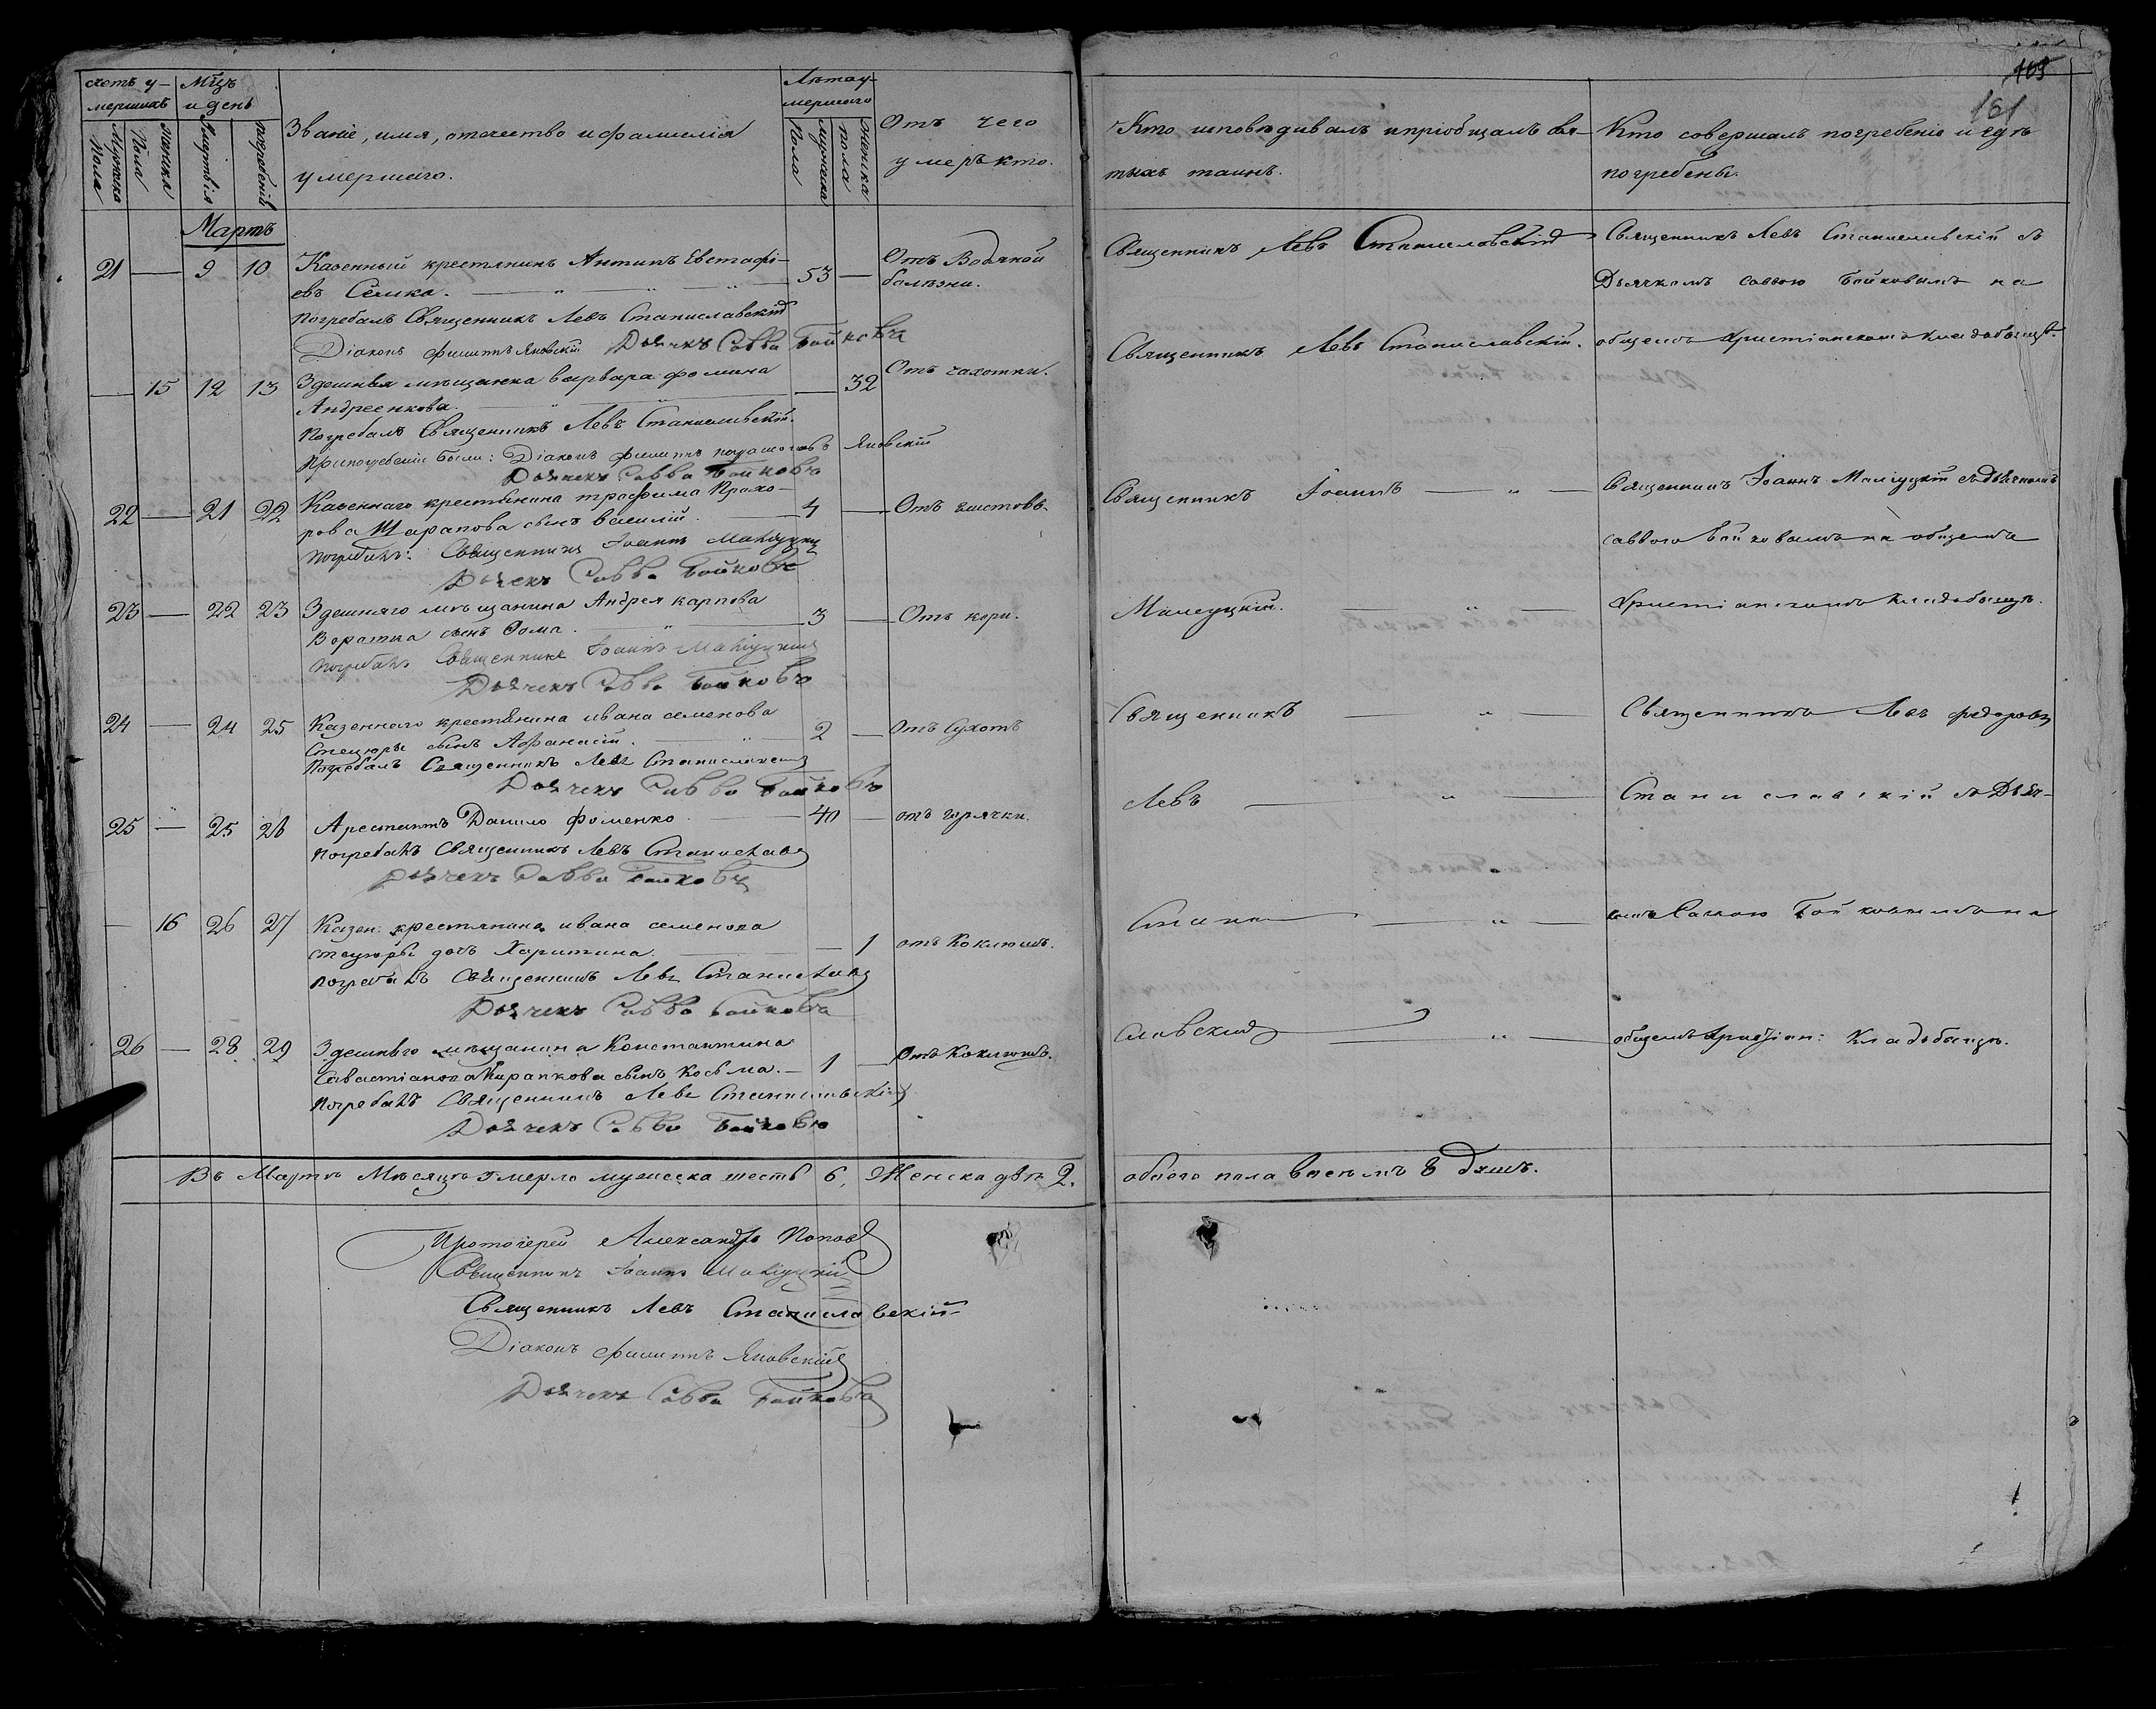 счетъ у-
мершихъ
Мѣцъ
и день
Званіе, имя, отечество и фамилія
умершаго.
Лѣта у-
мершаго
Отъ чего
умеръ кто.
Мужеска
Пола
Женска
Пола
Смертія
погребенія
мужеска
Пола
Женска
пола
Мартъ
21 — 9 10 Казенный крестянинъ Антипъ Евстафі-
евъ Семка. 53 — Отъ Водяной
болѣзни.
погребалъ Священникъ Левъ Станиславскій
Діаконъ Филиппъ Яновскій Дьячекъ Савва Бойковъ
— 15 12 13 Здешняя мѣщанка варвара Фомина
Андреенкова. — 32 Отъ чахотки.
Погребалъ Священникъ Левъ Станиславскій.
При погребеніи были: Діаконъ Филиппъ Яновскій
Дьячекъ Савва Бойковъ
22 — 21 22 Казеннаго крестянина трофима Прохо-
рова Шарапова сынъ василій. 4 —
погребалъ: Священникъ Іоаннъ
Дьячекъ Савва Бойковъ
23 — 22 23 Здешняго мѣщанина Андрея карпова
сынъ Фома. 3 — Отъ кори.
погребалъ Священникъ Іоаннъ
Дьячекъ Савва Бойковъ
24 — 24 25 Казеннаго крестянина ивана семенова
Стецюры сынъ Афанасій. 2 — Отъ Сухотъ
Погребалъ Священникъ Левъ Станиславскій
Дьячекъ Савва Бойковъ
25 — 25 26 Арестантъ Данило Фоменко. 40 — отъ горячки.
погребалъ Священникъ Левъ
Дьячекъ Савва Бойковъ
— 16 26 27 Казен: крестянина ивана семенова
стецюры дочь Харитина. — 1 отъ Коклюшъ.
погребалъ Священникъ Левъ
Дьячекъ Савва Бойковъ
26 — 28 29 Здешняго мѣщанина Константина
Савастіанова сынъ Косьма. — 1 — Отъ Коклюшъ.
погребалъ Священникъ Левъ Станиславскій
Дьячекъ Савва Бойковъ
Въ Мартѣ Мѣсяцѣ умерло мужеска шесть 6, Женска двѣ 2.
Протоіерей Александръ Поповъ
Священникъ Іоаннъ
Священникъ Левъ Станиславскій
Діаконъ Филиппъ Яновскій
Дьячекъ Савва Бойковъ
109
181
Кто исповѣдивалъ и пріобщалъ свя-
тыхъ таинъ.
Кто совершалъ погребеніе и гдѣ
погребены.
Священникъ Левъ Станиславскій
Священникъ Левъ Станиславскій съ
Дьячкомъ Саввою Бойковымъ на
Священникъ Левъ Станиславскій.
общемъ Христіанскомъ кладбыщѣ.
Священникъ Іоаннъ
Священникъ Іоаннъ съ дьячкомъ
Саввою Бойковымъ на общемъ
Христіанскомъ Кладбыщѣ.
Священникъ
Священникъ Левъ Федоровъ
Левъ
Станиславскій съ Дьяч-
Стани
комъ Саввою Бойковымъ на
славскій
общемъ Христіан: Кладбыщѣ.
обоего пола восемъ 8 душъ.